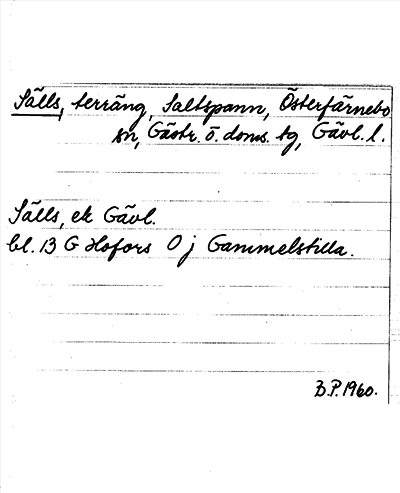 Sälls, terräng, Saltspann, Österfärnebo
sn, Gästr. ö. doms. tg, Gävl. l.
Sälls, ek Gävl.
bl. 13 G Hofors O j Gammelstilla.
B.P. 1960.